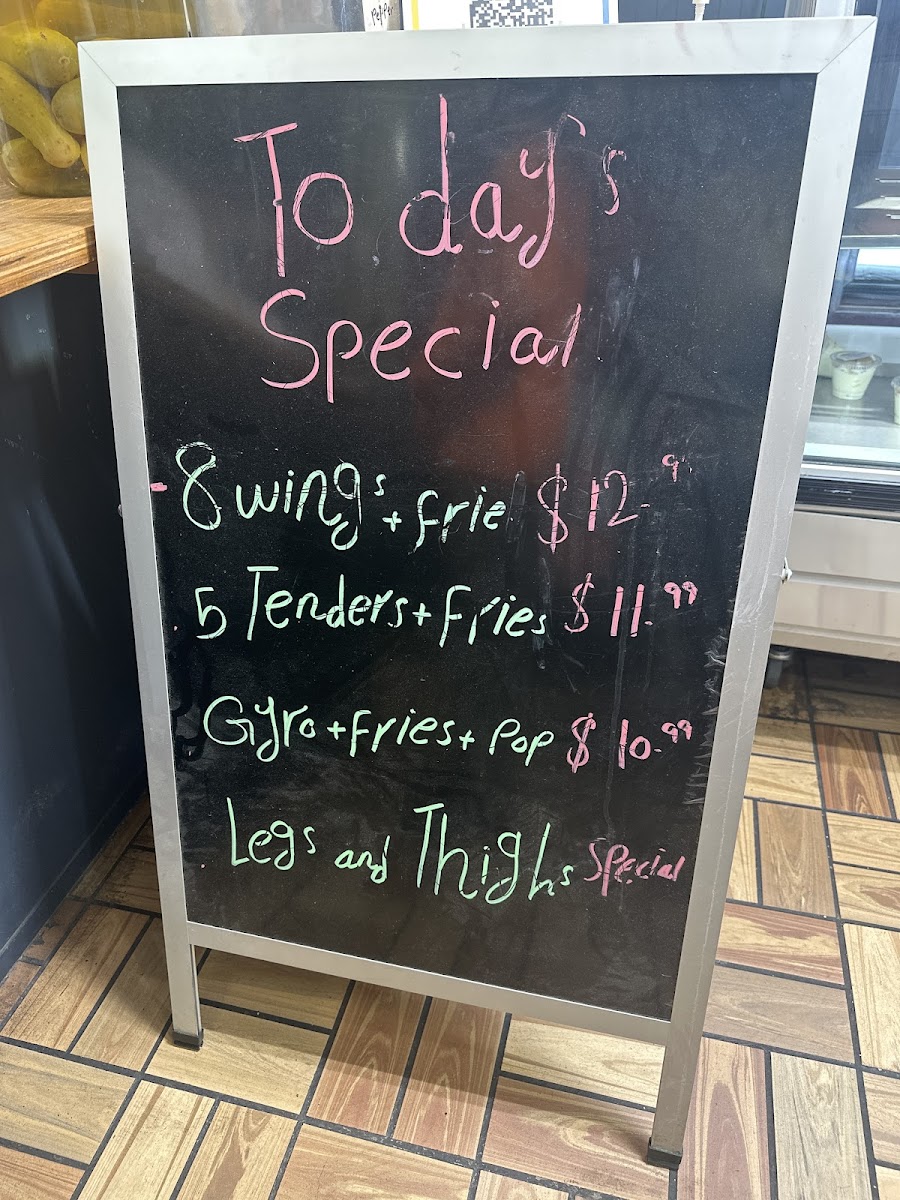 Pepper
Today's
Special
8 wings + frie $12.9
5 Tenders + Fries $11.99
Gyro + Fries + Pop $10.99
Legs and Thighs Special